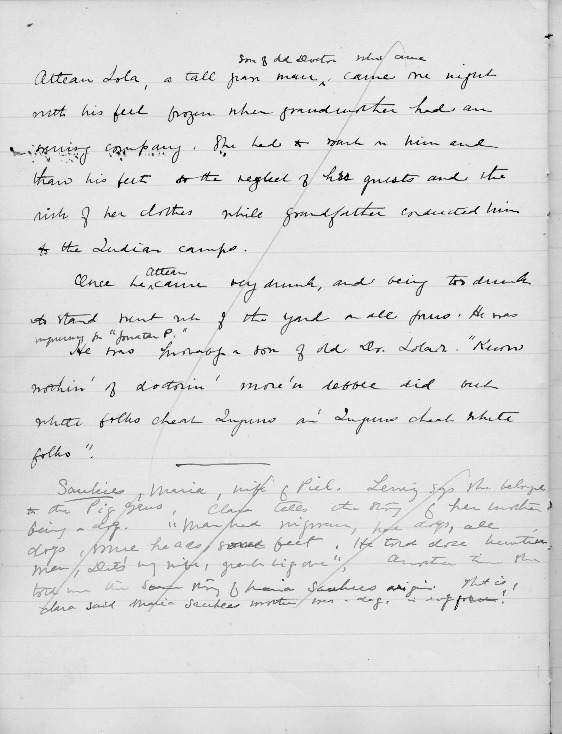 son of old Doctor who came
Attean Lola, a tall man, came one night
with his feet frozen when grandmother had an
evening company. She had to wait on him and
thaw his feet to the neglect of her guests and the
risk of her clothes while grandfather conducted him
to the Indian camps.
Attean
Once he came very drunk, and being too drunk
to stand went out of the yard on all fours. He was
inquiring for "Jonatan P."
He was a son of old Dr. Lola. "Know
nothin' of doctorin' more'n did but
white folks cheat Injuns an' Injuns cheat white
folks".
Saukies, Maria, wife of Piel. says she belongs
to the Pig genus, Clara tells the story of her mother
being a dog. "Man had dogs, all
dogs, some heads some feet. He told dose
men, dat's my wife, great big one"; Another time she
told me the same story of Maria Saukies origin. That is,
Clara said Maria Saukies mother was a dog, in !